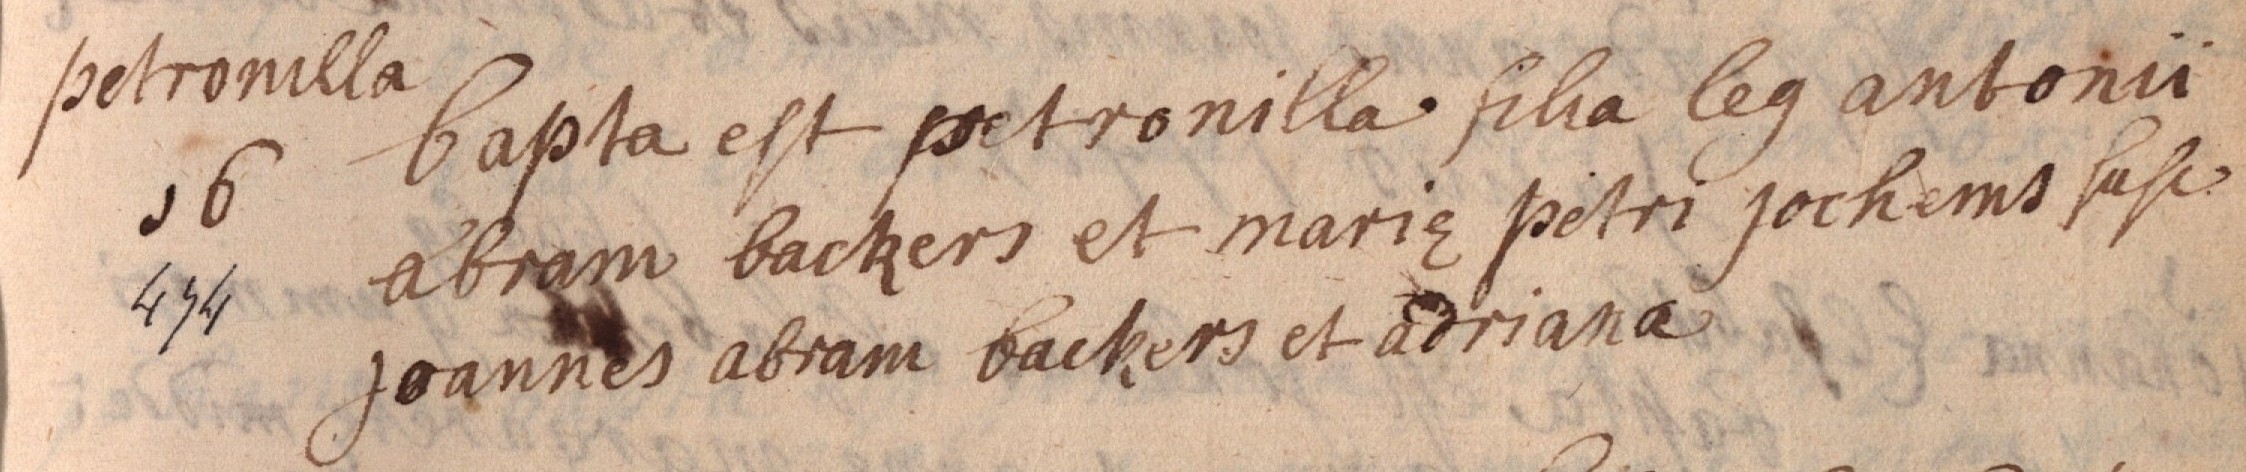 petronilla
16
474
bapta est petronilla filia leg antonii
abram backers et marię petri jochems susc
joannes abram backers et adriana